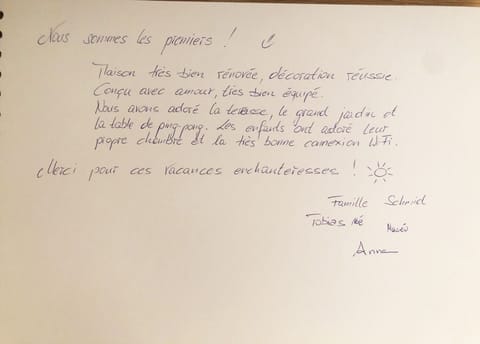 Nous sommes les premiers !
Maison très bien rénovée, décoration réussie.
Conçu avec amour, très bien équipé.
Nous avons adoré la terrasse, le grand jardin et
la table de ping-pong. Les enfants ont adoré leur
propre chambre et la très bonne connexion Wi-Fi.
Merci pour ces vacances enchanteresses !
Famille Schmid
Tobias
Anna